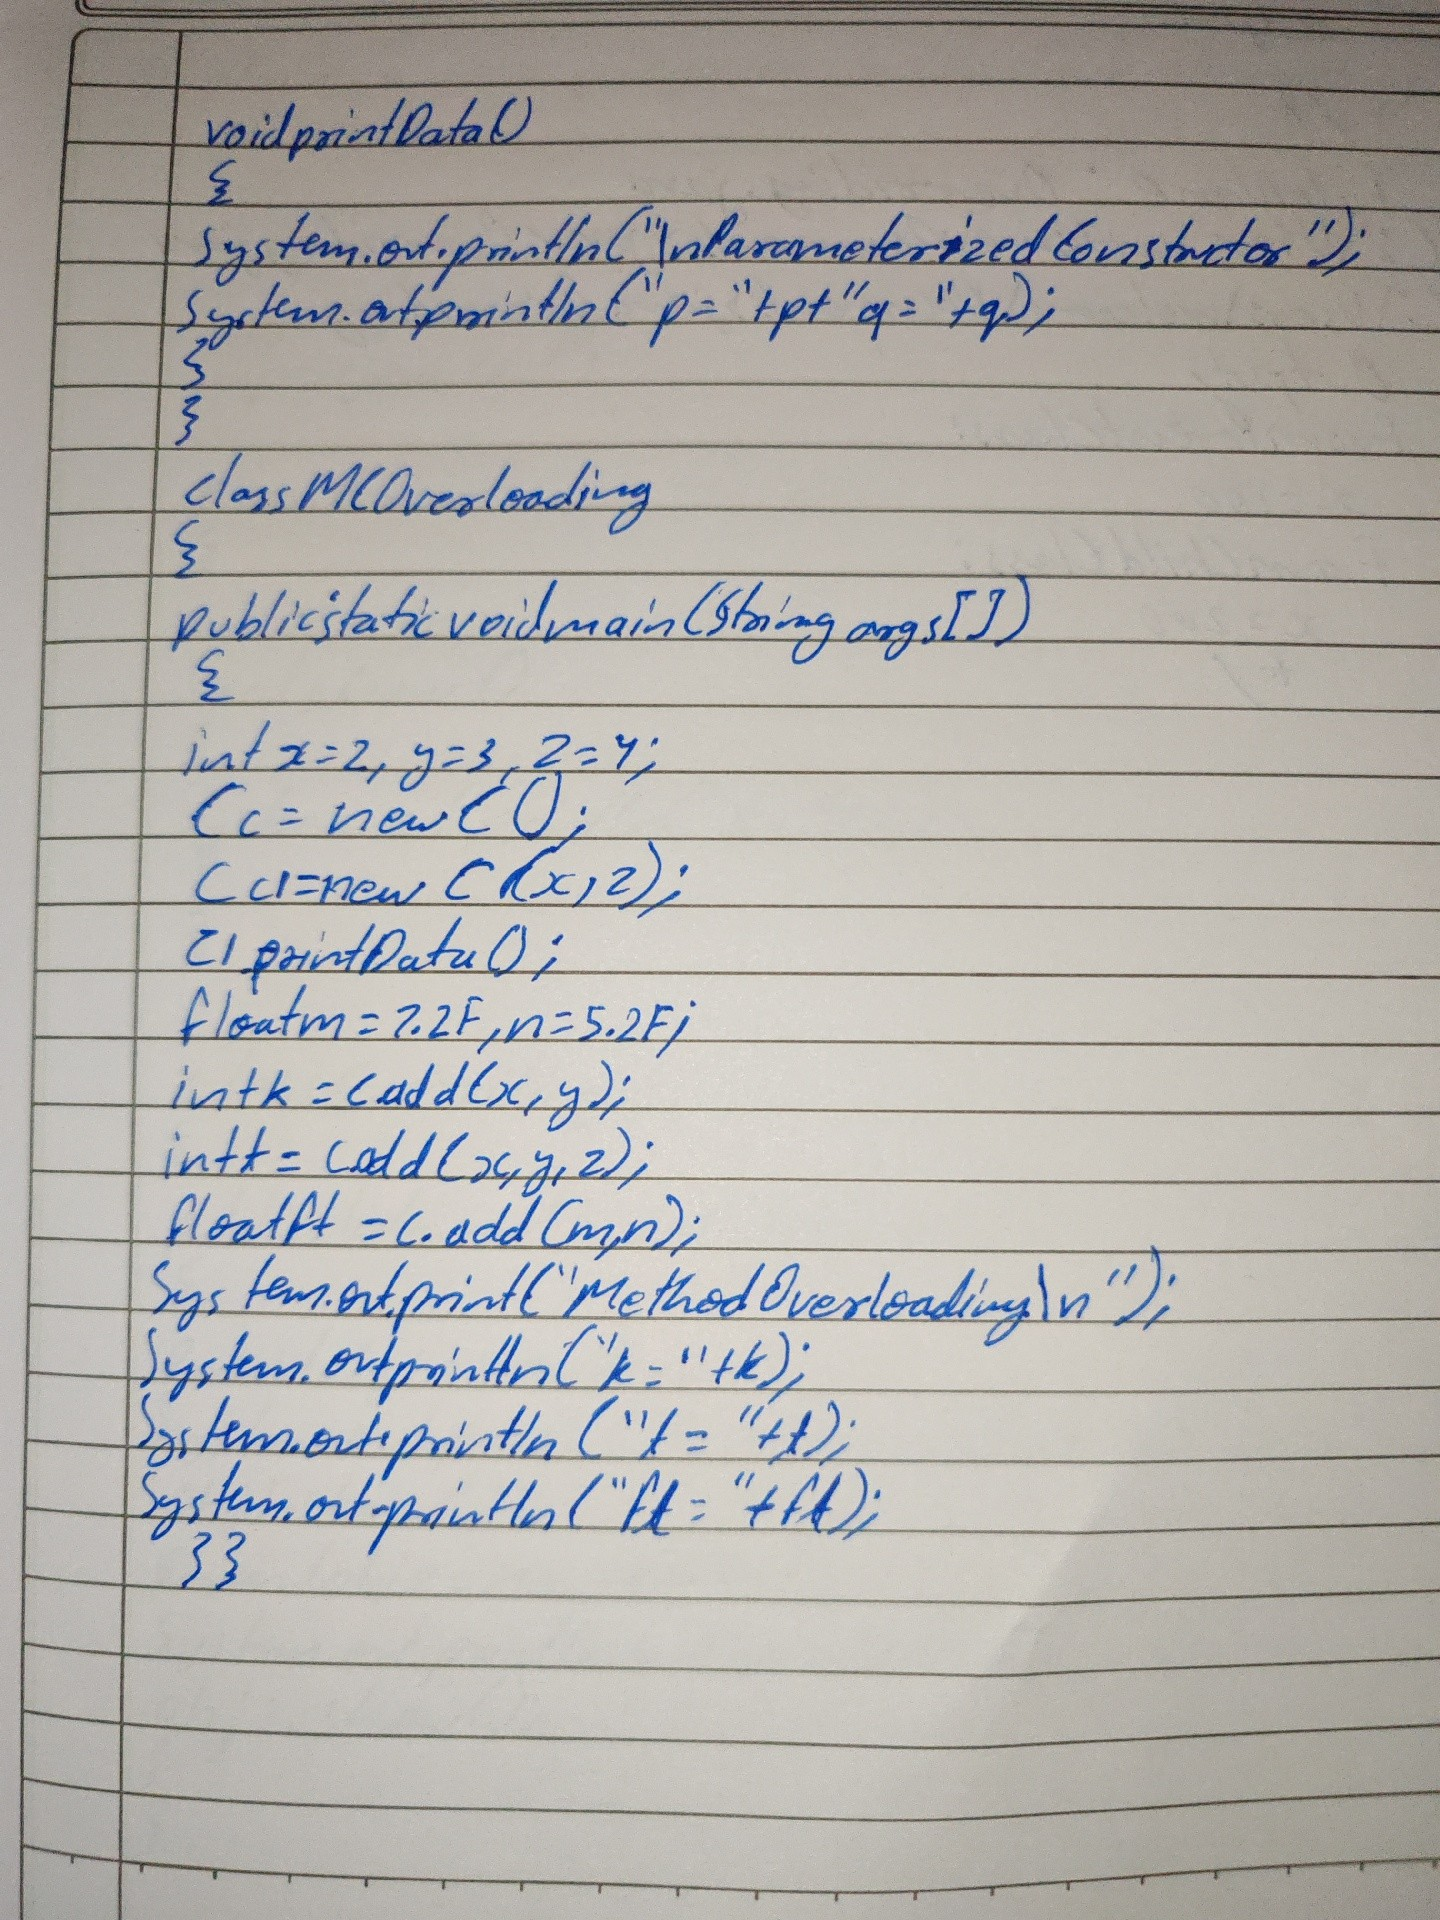 void printData()
{
System.out.println("\nParameterized Constructor");
System.out.println("p="+p+"q="+q);
}
}
class MCOverloading
{
public static void main(String args[])
{
int x=2, y=3, z=4;
C c = new C();
C c1=new C(x,z);
c1.printData();
float m=7.2F, n=5.2F;
int k = c.add(x, y);
int t = c.add(x, y, z);
float ft = c.add(m,n);
System.out.print("Method Overloading\n");
System.out.println("k="+k);
System.out.println("t="+t);
System.out.println("ft="+ft);
}}